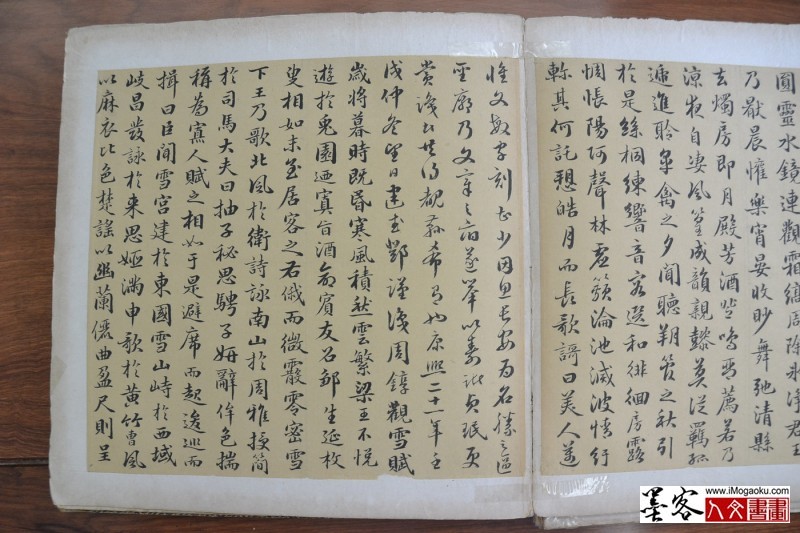 圓靈水鏡連觀霜縞周除冰淨君王
乃猒晨懽樂宵宴收妙舞弛清縣
去燭房即月殿芳酒登鳴琴薦若乃
涼夜自凄風篁成韻親懿莫從羈孤
遞進聆皋禽之夕聞聽朔管之秋引
於是絲桐練響音容選和徘徊房露
惆悵陽阿聲林虛籟淪池滅波情紆
軫其何託愬皓月而長歌謌曰美人邁
惟文敏字刻少因思長安為名勝之區
聖廟乃文章之府遂舉以壽貞珉更
賞識希有也康熙二十一年壬
戌仲冬望日鄂謹識周錞觀雪賦
歲將暮時既昏寒風積愁雲繁梁王不悅
遊於兔園迺寘旨酒命賓友召鄒生延枚
叟相如末至居客之右俄而微霰零密雪
下王乃歌北風於衛詩詠南山於周雅授簡
於司馬大夫曰抽子秘思騁子妍辭侔色揣
稱為寡人賦之相如于是避席而起逡巡而
揖曰臣聞雪宮建於東國雪山峙於西域
岐昌發詠於來思姬滿申歌於黃竹曹風
以麻衣比色楚謠以幽蘭儷曲盈尺則呈
www.iMogaoku.com
墨客人文書畫